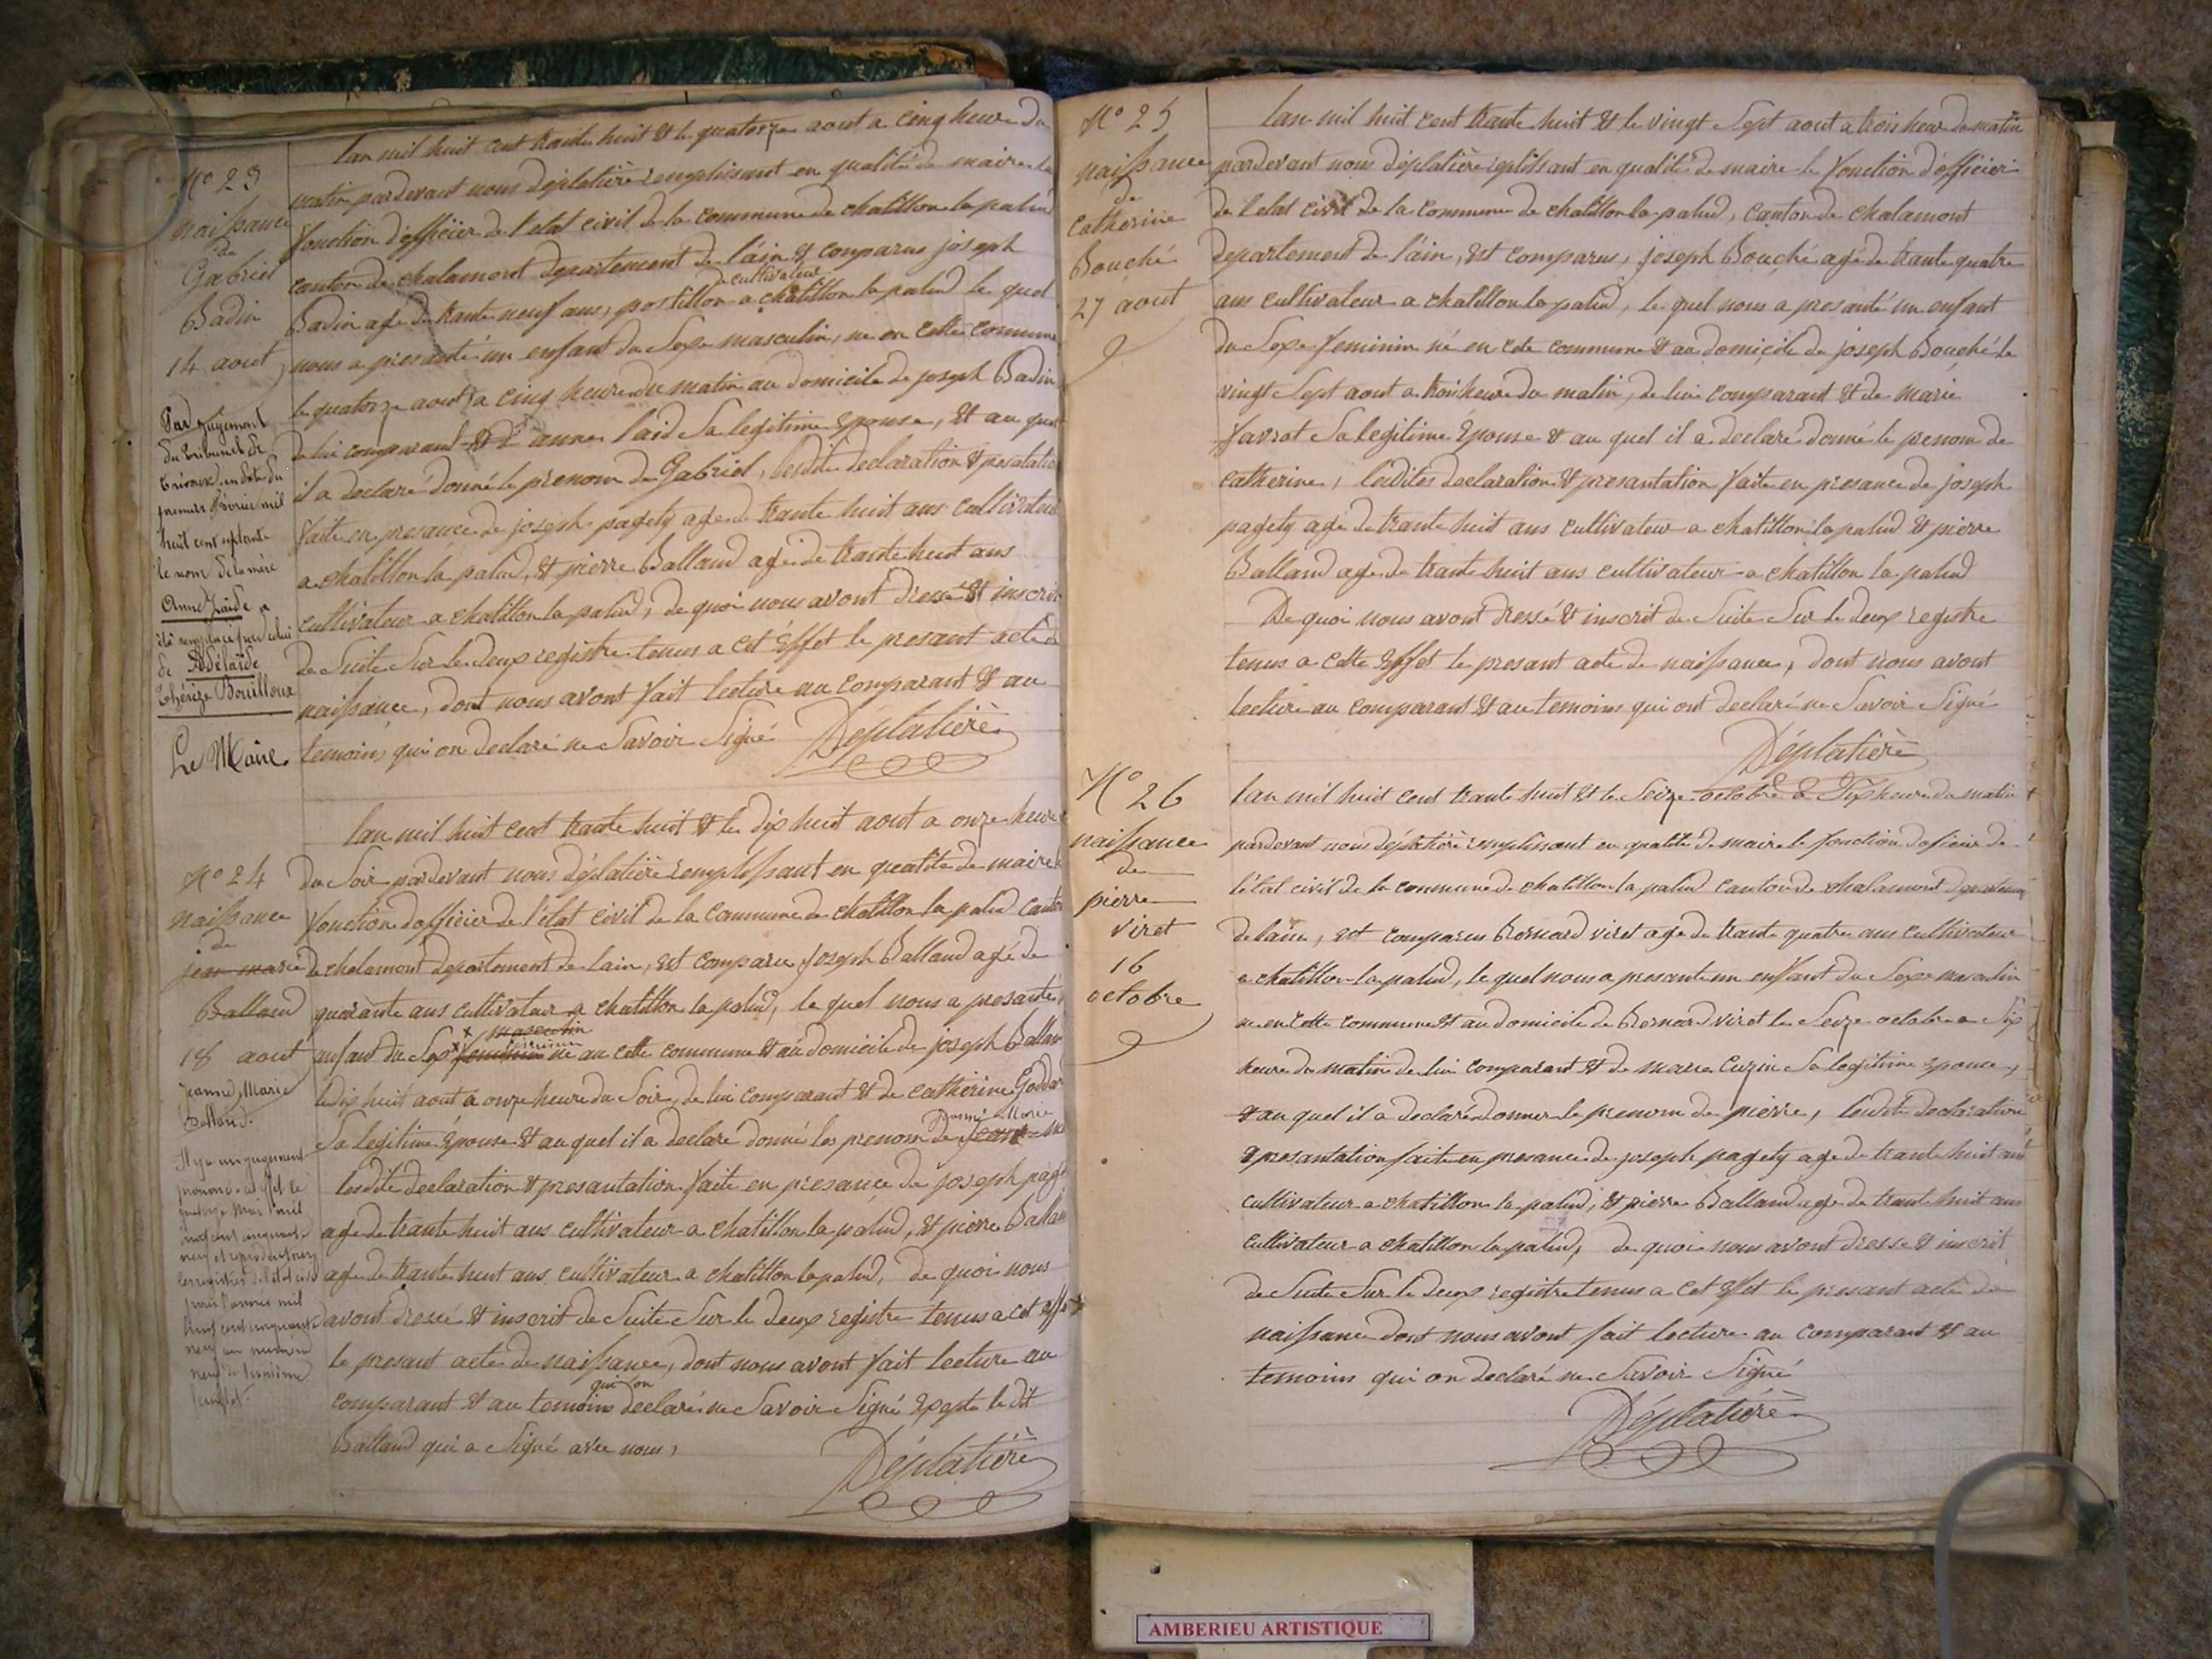 N° 23
naissance
de
Gabriel
Badin
14 aout
Par jugement
du tribunal de
Trévoux en date du
premier février mil
huit cent septante
le nom de la mère
Anne Laïde a
été remplacé par celui
de Adélaïde
Thérèze Bouilloux
Le Maire
lan mil huit cent trante huit & le quatorze aout a cinq heure du
matin pardevant nous déplatière remplissant en qualité de maire le
fonction d'officier de l'etat civil de la commune de chatillon la palud
canton de chalamont departement de l'áin & comparus joseph
Badin age de trante neuf ans, postillon & cultivateur a chatillon la palud le quel
nous a presanté un enfant du Sexe masculin, ne en cette commune
le quatorze aout a cinq heure du matin au domicile de joseph Badin
de lui comparant & d'anne laid Sa legitime Epouse, & au quel
il a declaré donné le prenom de Gabriel, lesdite declaration & presantation
faite en presance de joseph pagety age de trante huit ans cultivateur
a chatillon la palud, & pierre Balland agé de trante huit ans
cultivateur a chatillon la palud, de quoi nous avont dressé & inscrit
de Suite Sur le deux registre tenus a cet Effet le presant acte de
naissance, dont nous avont fait lecture au comparant & au
temoins qui on declaré ne Savoir Signé Déplatière
N° 24
naissance
de
jean marie
Balland
18 aout
Jeanne, Marie
Balland.
Il y a un jugement
lan mil huit cent trante huit & le dix huit aout a onze heure
du Soir pardevant nous déplatière remplissant en qualité de maire le
fonction d'officier de l'état civil de la commune de chatillon la palud canton
de chalamont departement de lain, est comparu joseph Balland agé de
quarante ans cultivateur a chatillon la palud, le quel nous a presanté
masculin
enfant du Sexe feminin né au cette commune & au domicile de joseph Balland
le dix huit aout a onze heure du Soir, de lui comparant & de catherine Goddar
Jeanne Marie
Sa legitime épouse & au quel il a declaré donné les prenom de Jean-
lesdite declaration & presantation faite en presance de joseph page
age de trante huit ans cultivateur a chatillon la palud, & pierre Balland
age de trante huit ans cultivateur a chatillon la palud, de quoi nous
avont dressé & inscrit de Suite Sur le deux registre tenus a cet effet
le presant acte de naissance, dont nous avont fait lecture au
comparant & au temoins qui on declaré ne Savoir Signé Exepté le dit
Balland qui a Signé avec nous,
Déplatière
N° 25
naissance
de
catherine
Bouché
27 aout
lan mil huit cent trante huit & le vingt Sept aout a trois heur du matin
pardevant nous déplatière replissant en qualité de maire le fonction d'officier
de l'etat civil de la commune de chatillon la palud, canton de chalamont
departement de l'áin, est comparus, joseph Bouché agé de trante quatre
ans cultivateur a chatillon la palud, le quel nous a presanté un enfant
du Sexe feminin né en cete commune & au domicile de joseph Bouché le
vingt Sept aout a troi heure du matin, de lui comparant & de marie
favrot Sa legitime Épouse & au quel il a declaré donné le prenom de
catherine, lesdites declaration & presantation faite en presance de joseph
pagety age de trante huit ans cultivateur a chatillon la palud & pierre
Balland age de trante huit ans cultivateur a chatillon la palud
De quoi nous avont dressé & inscrit de Suite Sur le deux registre
tenus a cette Effet le presant acte de naissance, dont nous avont
lecture au comparant & au temoins qui ont declaré ne Savoir Signé
Déplatière
N° 26
naissance
de
pierre
viret
16
octobre
lan mil huit cent trante huit & le Seize octobre a Six heure du matin
pardevant nous déplatière remplissant en qualité de maire le fonction doficier de
l'état civil de la commune de chatillon la palud canton de chalamont departement
de lain, est comparus Bernard viret age de trante quatre ans cultivateur
a chatillon la palud, le quel nous a presanté un enfant du Sexe masculin
ne en cette commune & au domicile de Bernard viret le Seize octobre a Six
heure du matin de lui comparant & de marie Cuzin Sa legitime epouse,
& au quel il a declaré donner le prenom de pierre, lesdite declaration
& presantation faite en presance de joseph pagety age de trante huit ans
cultivateur a chatillon la palud, & pierre Balland age de trante huit ans
cultivateur a chatillon la palud, de quoi nous avont dressé & inscrit
de Suite Sur le deux registre tenus a cet effet le presant acte de
naissance dont nous avont fait lecture au comparant & au
temoins qui on declaré ne Savoir Signé
Déplatière
AMBERIEU ARTISTIQUE